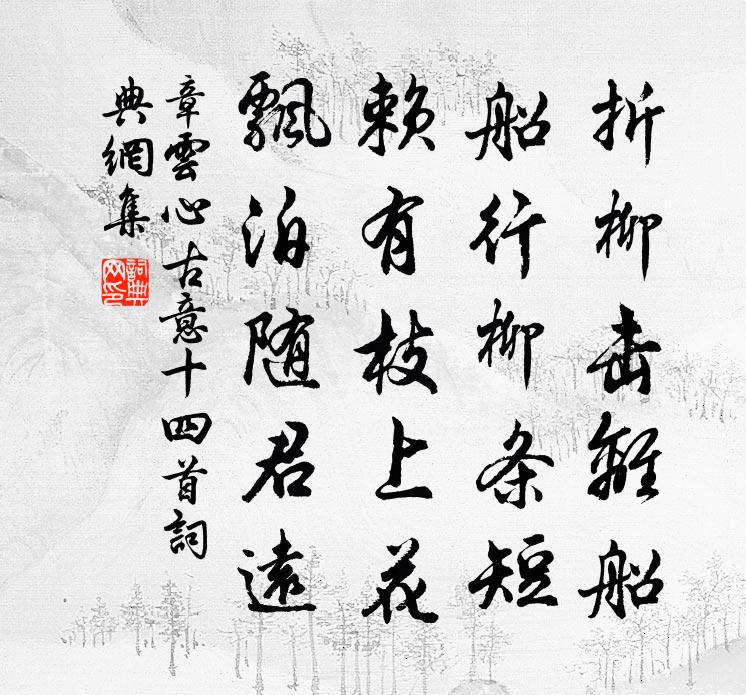 折柳击離船
船行柳条短
赖有枝上花
飄泊随君遠
章雲心古意十四首詞
典網集
詞典网印